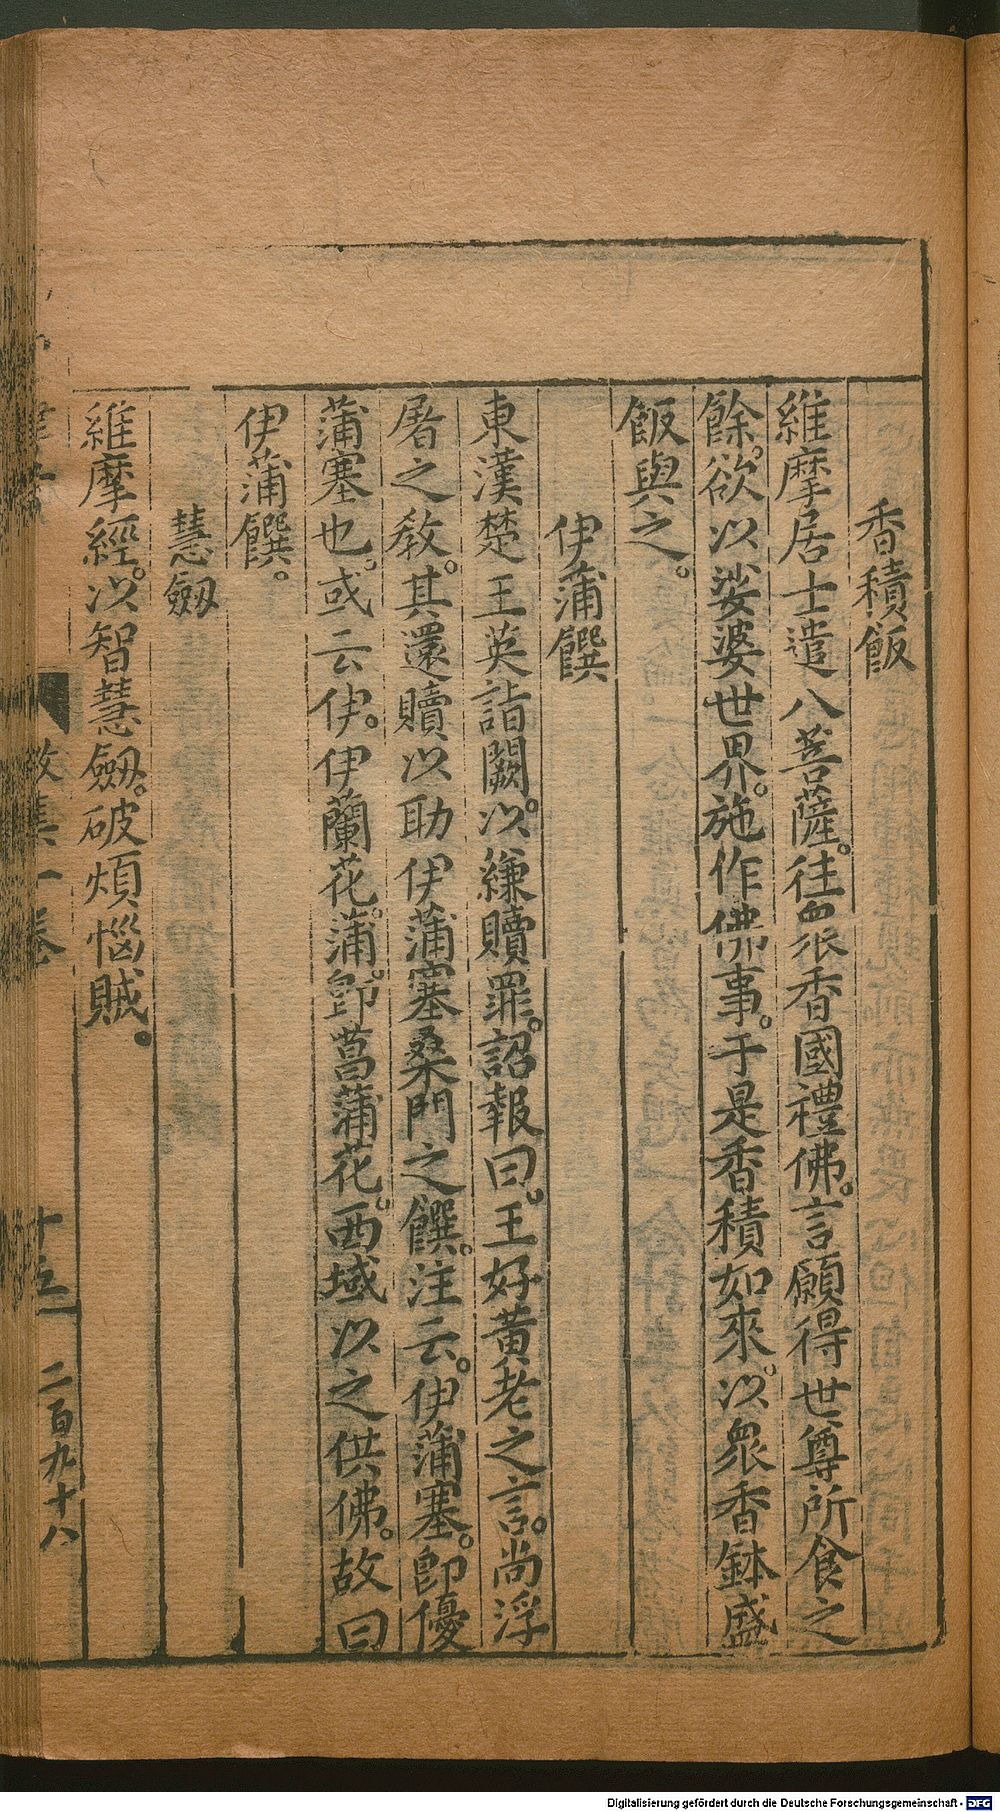 香積飯
維摩居士遣八菩薩。往眾香國禮佛。言願得世尊所食之
餘。欲以娑婆世界。施作佛事。于是香積如來。以眾香鉢盛
飯與之。
伊蒲饌
東漢楚王英詣闕。以縑贖罪。詔報曰。王好黃老之言。尚浮
屠之教。其還贖以助伊蒲塞桑門之饌。注云。伊蒲塞。即優
蒲塞也。或云伊。伊蘭花。蒲。即菖蒲花。西域以之供佛。故曰
伊蒲饌。
慧劔
維摩經。以智慧劔。破煩惱賊。
十五
二百九十八
Digitalisierung gefördert durch die Deutsche Forschungsgemeinschaft - DFG